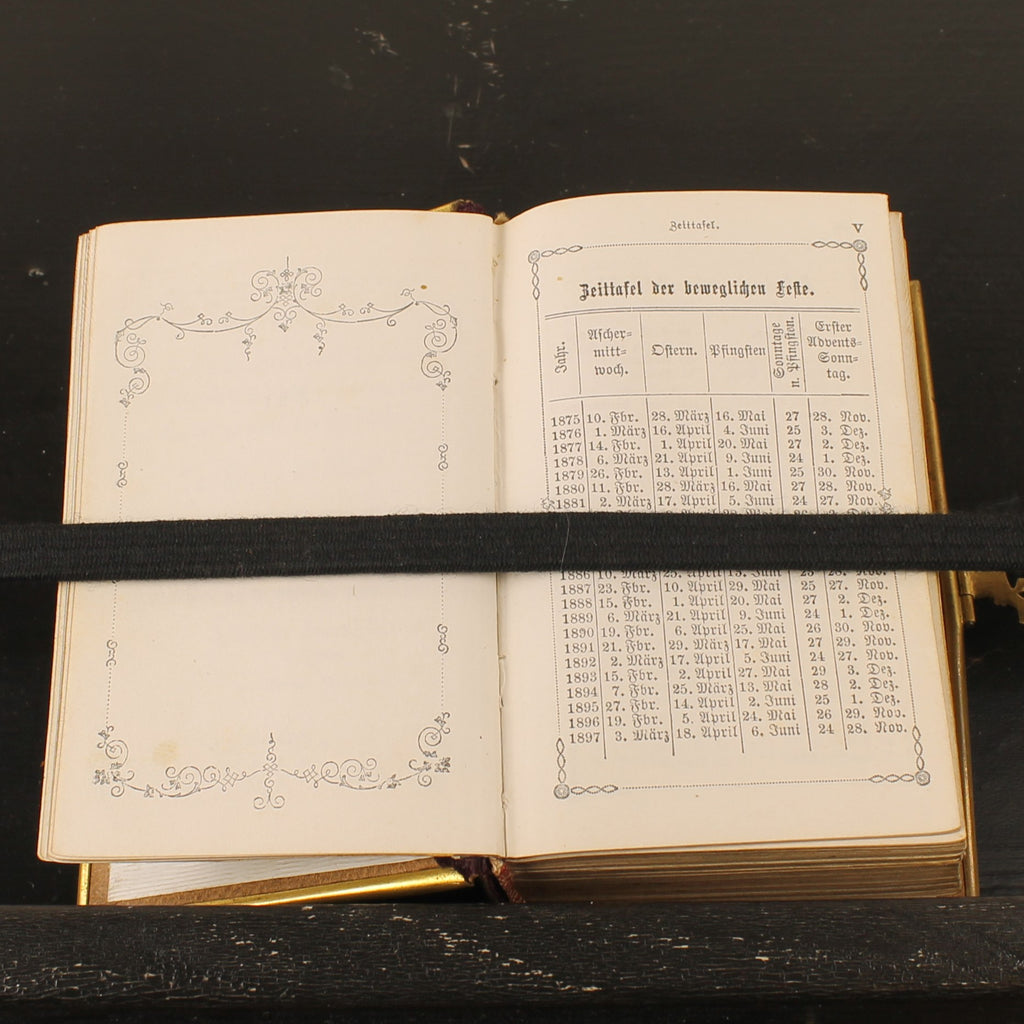 Zeittafel. V
Zeittafel der beweglichen Feste.
Jahr. Ascher-mitt-woch. Ostern. Pfingsten Sonntage n. Pfingsten. Erster Advents-Sonn-tag.
1875 10. Fbr. 28. März 16. Mai 27 28. Nov.
1876 1. März 16. April 4. Juni 25 3. Dez.
1877 14. Fbr. 1. April 20. Mai 27 2. Dez.
1878 6. März 21. April 9. Juni 24 1. Dez.
1879 26. Fbr. 13. April 1. Juni 25 30. Nov.
1880 11. Fbr. 28. März 16. Mai 27 28. Nov.
1881 2. März 17. April 5. Juni 24 27. Nov.
1886 10. März 25. April 13. Juni 28. Nov.
1887 23. Fbr. 10. April 29. Mai 25 27. Nov.
1888 15. Fbr. 1. April 20. Mai 27 2. Dez.
1889 6. März 21. April 9. Juni 24 1. Dez.
1890 19. Fbr. 6. April 25. Mai 26 30. Nov.
1891 21. Fbr. 29. März 17. Mai 27 29. Nov.
1892 2. März 17. April 5. Juni 24 27. Nov.
1893 15. Fbr. 2. April 27. Mai 29 3. Dez.
1894 7. Fbr. 25. März 13. Mai 28 2. Dez.
1895 27. Fbr. 14. April 2. Juni 25 1. Dez.
1896 19. Fbr. 5. April 24. Mai 26 29. Nov.
1897 3. März 18. April 6. Juni 24 28. Nov.